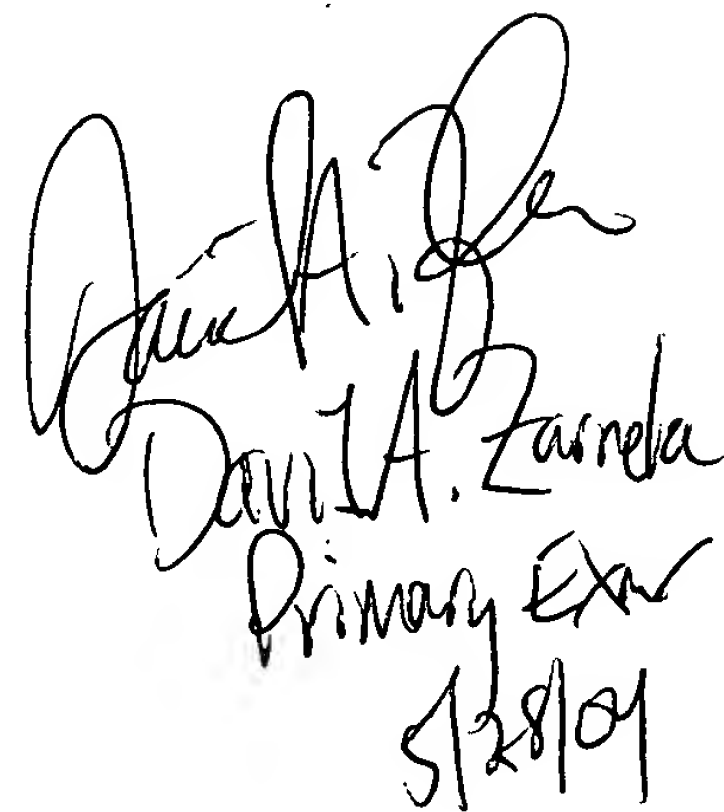 David A. Z
David A. Zarneke
Primary Exmr
5/28/04